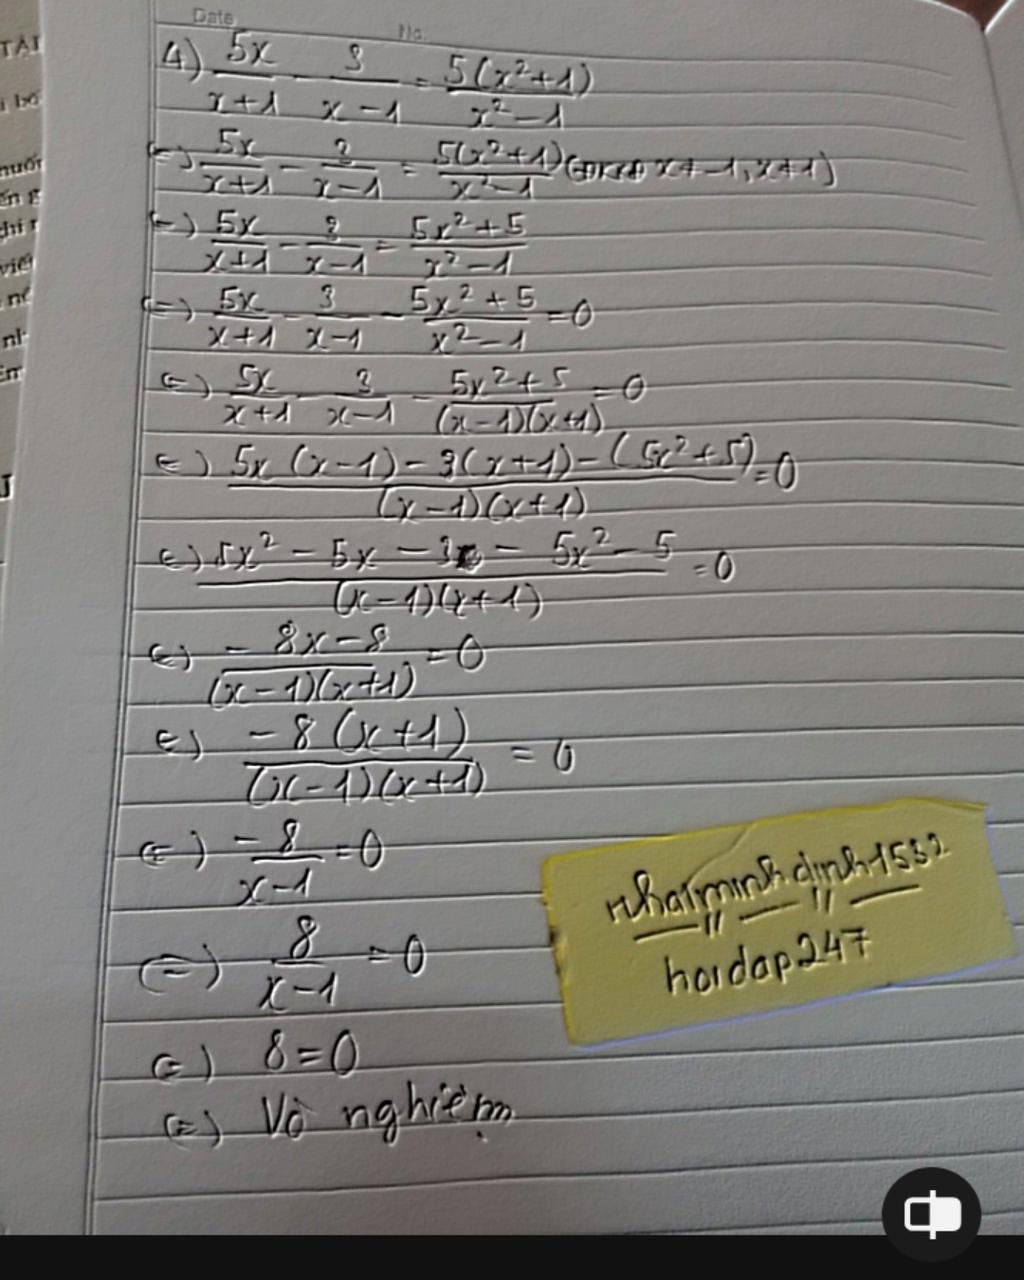 Date No.
4) 5x/(x+1) - 3/(x-1) = 5(x²+1)/(x²-1)
(=) 5x/(x+1) - 3/(x-1) = 5(x²+1)/(x²-1) (x≠-1, x≠1)
(=) 5x/(x+1) - 3/(x-1) = (5x²+5)/(x²-1)
(=) 5x/(x+1) - 3/(x-1) - (5x²+5)/(x²-1) = 0
(=) 5x/(x+1) - 3/(x-1) - (5x²+5)/((x-1)(x+1)) = 0
(=) (5x(x-1) - 3(x+1) - (5x²+5))/((x-1)(x+1)) = 0
(=) (5x² - 5x - 3 - 5x² - 5)/((x-1)(x+1)) = 0
(=) (-8x-8)/((x-1)(x+1)) = 0
(=) -8(x+1)/((x-1)(x+1)) = 0
(=) -8/(x-1) = 0
(=) 8/(x-1) = 0
(=) 8=0
(=) Vô nghiệm
nhatminhdinh1532
hoidap247